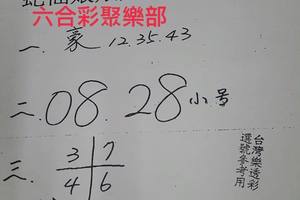 六合彩聚樂部
一、豪 12.35.43
二、08.28小号
三、
3 7
4 6
台灣樂透彩
選號參考用